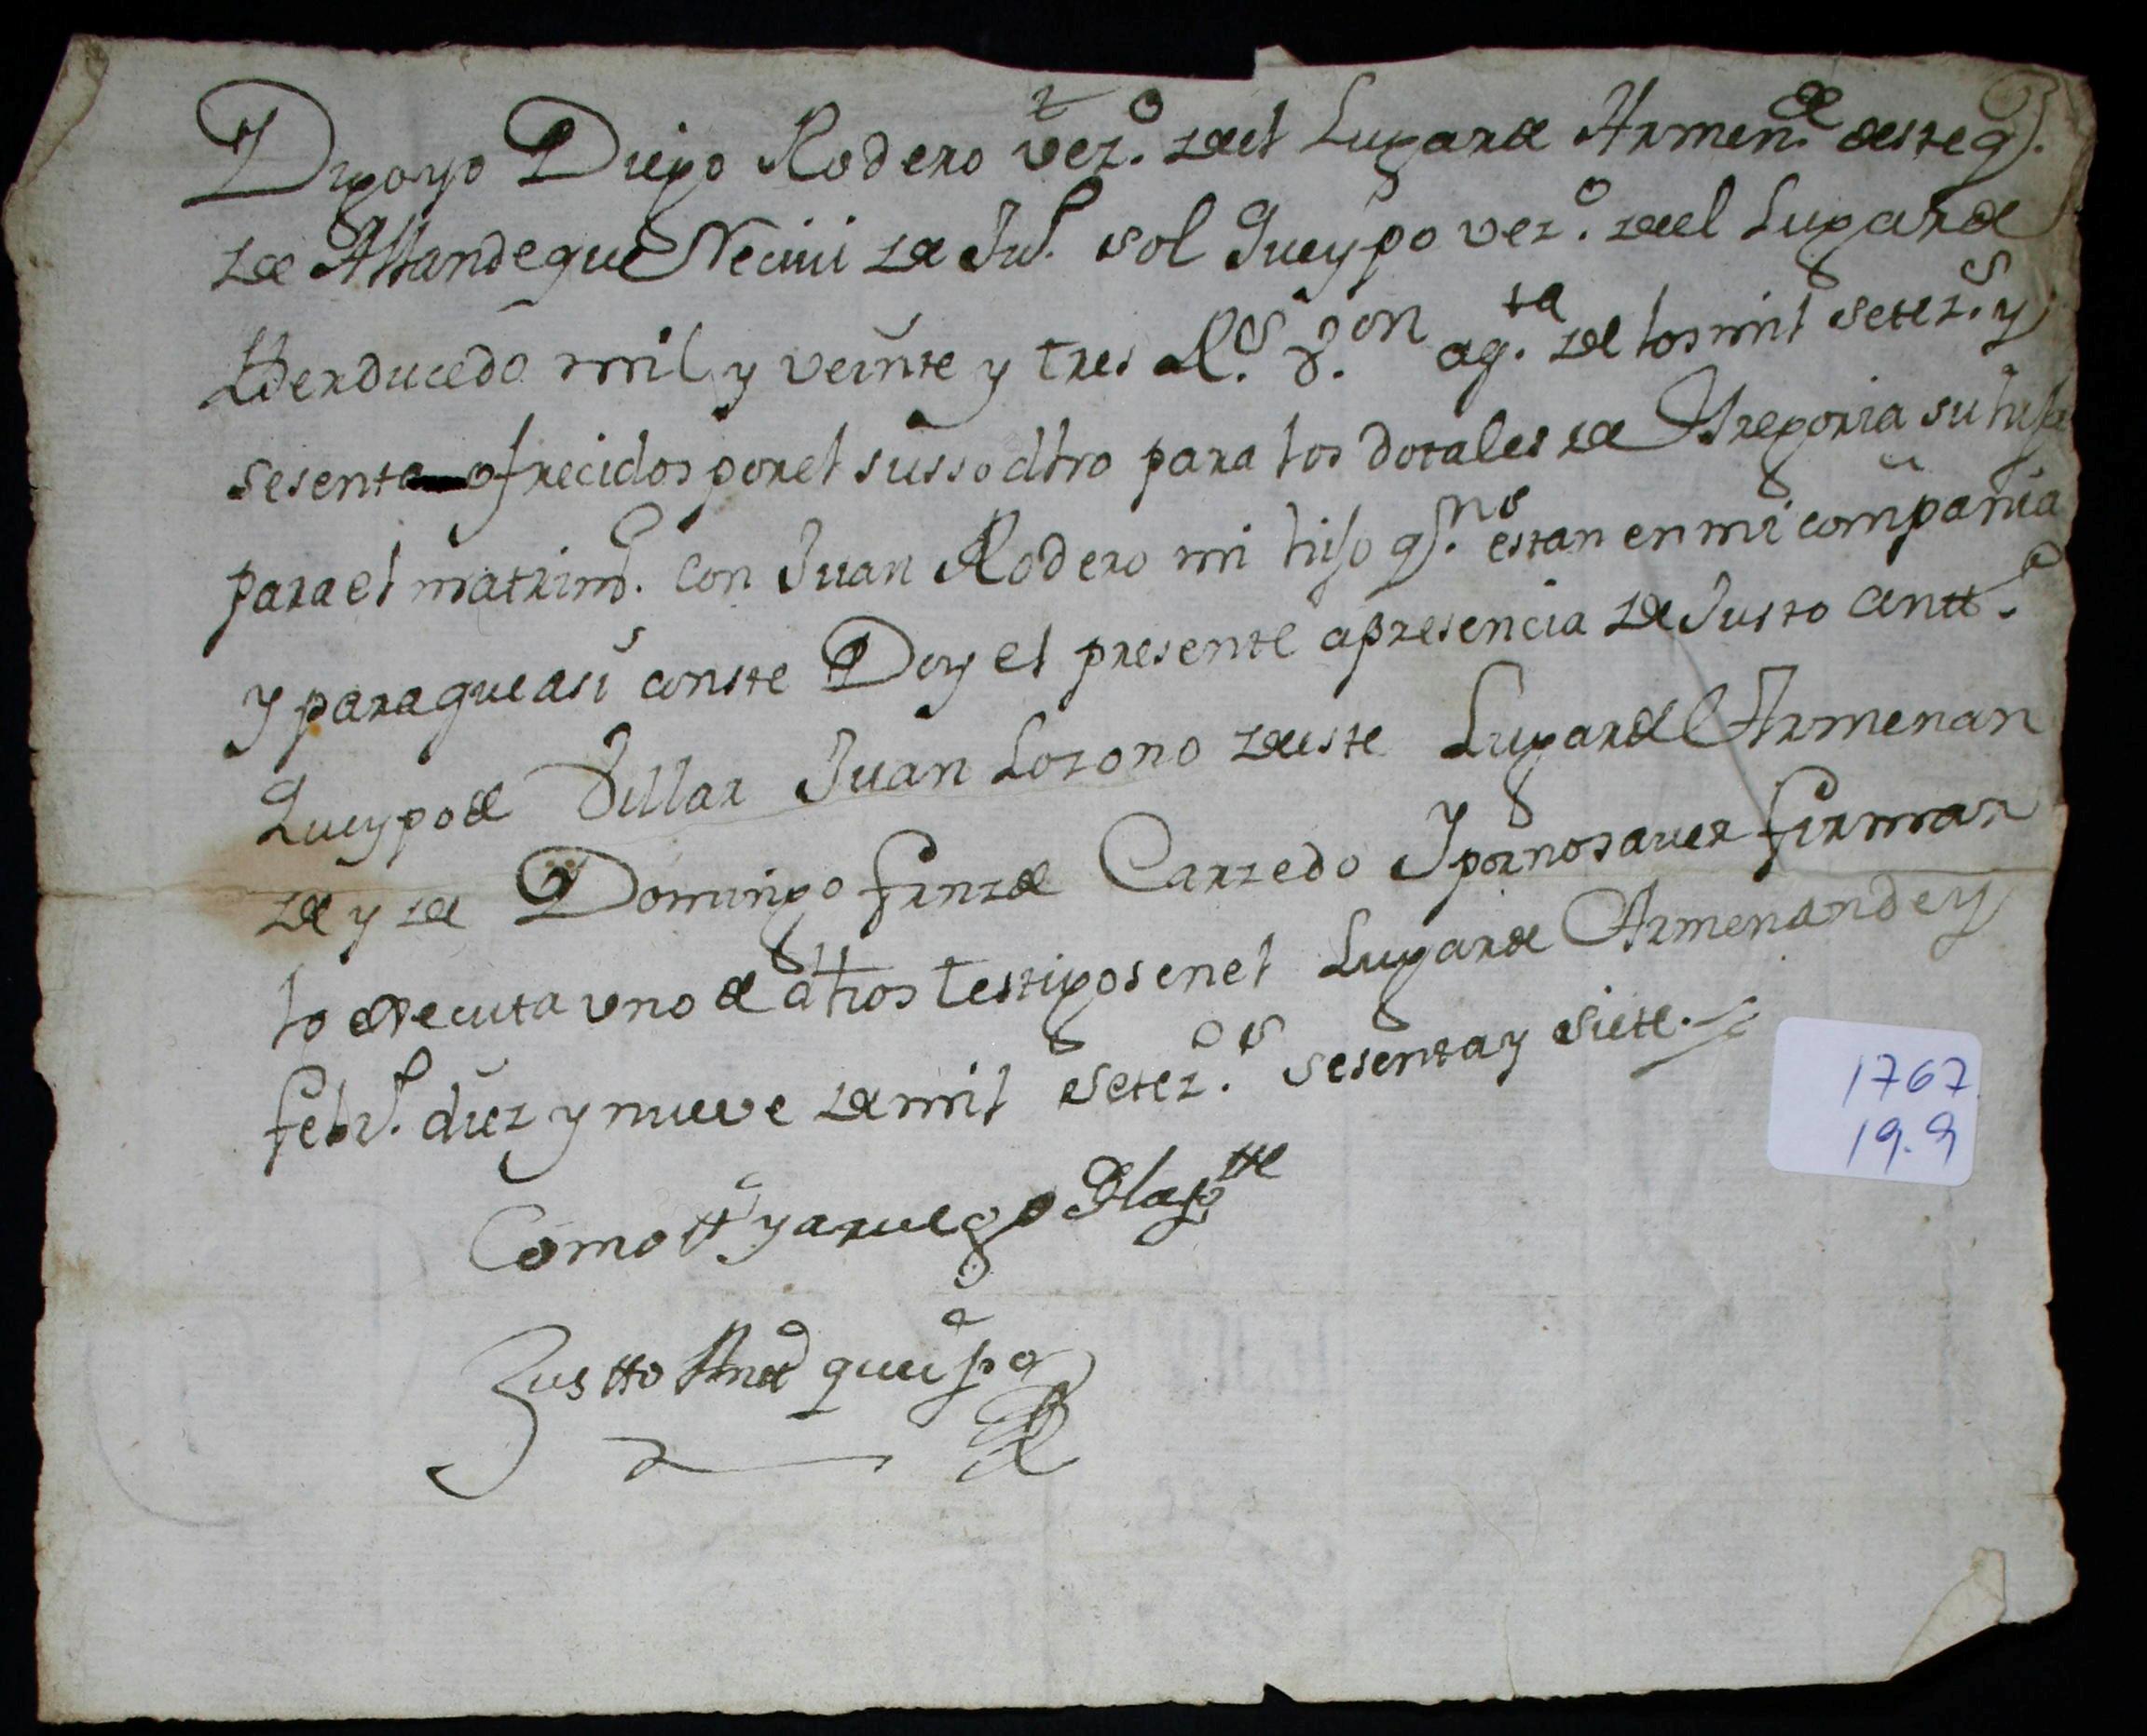 Digo yo Diego Rodero vez.º del Lugar de Armen.de deste q.
de Allande que Recivi de Ju.º sol Queypo vez.º del Lugar de
Berducedo mil y veinte y tres R.s v.on a q.ta de los mil setez.s y
sesenta ofrecidos por el susso dhro para los dotales de Gregoria su hija
para el matrim.º con Juan Rodero mi hijo q.nes estan en mi compañia
y para que asi conste Doy el presente a presencia de Justo Antt.º
Queypo de Villar Juan Lozano deste Lugar de Armenan
de y de Domingo frnz de Carzedo Y por no saver firmar
lo executa uno de dhos testigos en el Lugar de Armenande y
febr.º diez y nueve de mil setez.os sesenta y siete.
Como tt.º y a ruego de la p.tte
Justto Antt.º queipo
1767
19.9